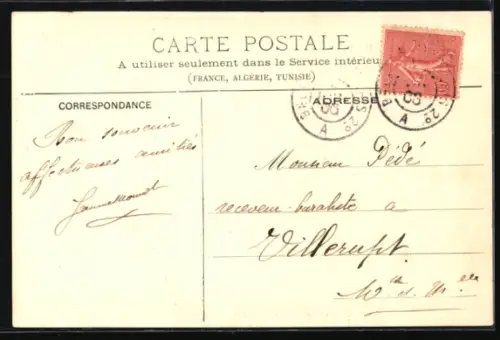 CARTE POSTALE
A utiliser seulement dans le Service intérieur
(FRANCE, ALGÉRIE, TUNISIE)
CORRESPONDANCE
Bon souvenir
affectueuses amitiés
ADRESSE
Monsieur Dédé
receveur-buraliste à
Villerupt
Mthe et Mselle